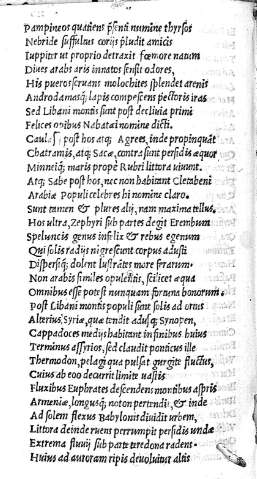 Pampineos quatiens p̃senti numine thyrsos
Nebride suffultus coriis p̃ludit amicis
Iuppiter ut proprio detraxit fœmore natum
Diues arabs aris innatos sensit odores,
His pueros eruant molochites splendet arenis
Androdamasq; lapis compescens pectoris iras
Sed Libani montis sunt post decliuia primi
Felices opibus Nabatæi nomine dicti.
post hos atq; Agrees, inde propinquāt
Chatramis, atq; Sacæ, contra sunt persidis æquor
Minneiq; maris prope Rubri littora uiuunt.
Atq; Sabæ post hos, nec non habitant Cletabeni
Arabiæ Populi celebres hi nomine claro.
Sunt tamen & plures alij, nam maxima tellus.
Hos ultra, Zephyri sub partes degit Erembum
Speluncis genus infelix & rebus egenum
Qui solis radijs nigrescunt corpus adusti
Dispersiq; dolent lustrāter more ferarum.
Non arabis similes opulētis, scilicet æqua
Omnibus esse potest nunquam fortuna bonorum.
Post Libani montis populi sunt solis ad ortus
Alterius, Syriæ, quæ tendit adusq; Synopen,
Cappadoces medius habitant in finibus huius
Terminus assyrios, sed claudit ponticus ille
Thermodon, pelagi qua pulsat gurgite fluctus,
Cuius ab eoo decurrit limite uastis
Fluxibus Euphrates descendens montibus aspris
Armeniæ, longusq; noton pertendit, & inde
Ad solem flexus Babylonis diuidit urbem,
Littora deinde ruens perrumpit persidis undæ
Extrema fluuij sub parte teredona radens.
Huius ad auroram ripis deuoluitur altis